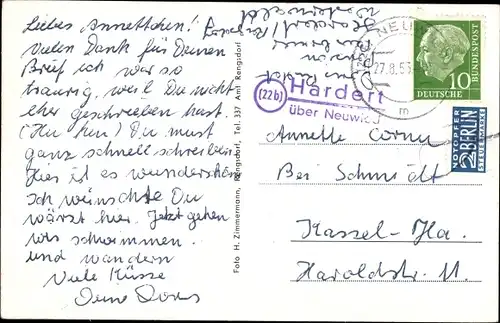 Liebes Annettchen!
Vielen Dank für Deinen
Brief ich war so
traurig, weil Du nicht
eher geschrieben hast.
(Hu hu) Du must
ganz schnell schreiben
Hier ist es wunderschön
ich wünschte Du
wärst hier. Jetzt gehen
wir schwimmen.
und wandern
Viele Küsse
Deine Doris
Foto H. Zimmermann, Rengsdorf, Tel. 337 Amt Rengsdorf
Hardert/
Westerwald
(22b) Hardert
über Neuwied
NEUW
27.8.55
m
10
DEUTSCHE BUNDESPOST
NOTOPFER
2 BERLIN
STEUERMARKE
Annette Cornu
Bei Schmidt
Kassel-Ha.
Haroldstr. 11.